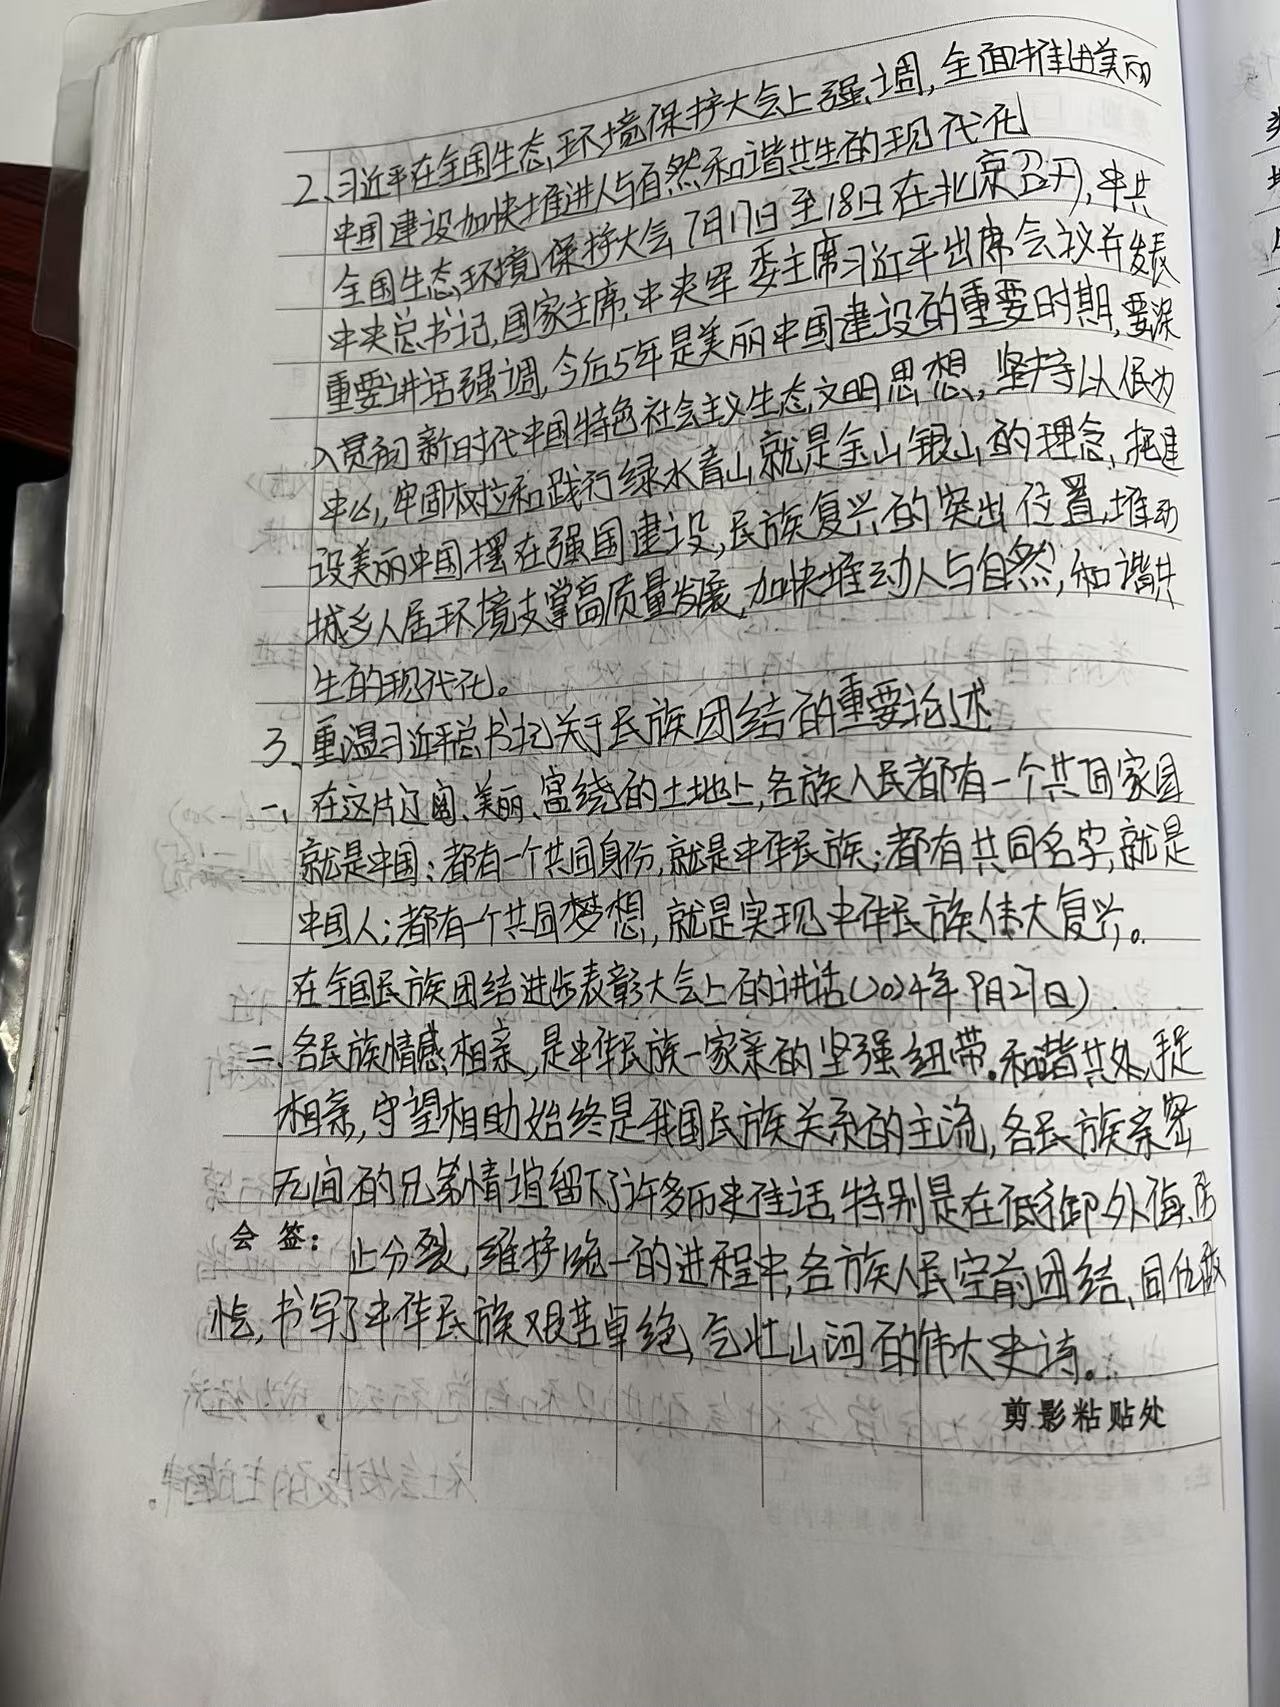 2、习近平在全国生态环境保护大会上强调,全面推进美丽
中国建设加快推进人与自然和谐共生的现代化
全国生态环境保护大会7月17日至18日在北京召开,中共
中央总书记,国家主席,中央军委主席习近平出席会议并发表
重要讲话强调,今后5年是美丽中国建设的重要时期,要深
入贯彻新时代中国特色社会主义生态文明思想,坚持以人民为
中心,牢固树立和践行绿水青山就是金山银山的理念,把建
设美丽中国摆在强国建设,民族复兴的突出位置,推动
城乡人居环境支撑高质量发展,加快推动人与自然,和谐共
生的现代化。
3、重温习近平总书记关于民族团结的重要论述
一、在这片辽阔、美丽、富绕的土地上,各族人民都有一个共同家园
就是中国;都有一个共同身份,就是中华民族;都有共同名字,就是
中国人;都有一个共同梦想,就是实现中华民族伟大复兴。
在全国民族团结进步表彰大会上的讲话(2024年9月27日)
二、各民族情感相亲,是中华民族一家亲的坚强纽带。和谐共处,
相亲,守望相助始终是我国民族关系的主流,各民族亲密
无间的兄弟情谊留下了许多历史佳话,特别是在抵御外侮、防
会签: 止分裂,维护统一的进程中,各族人民空前团结、同仇敌
忾,书写了中华民族艰苦卓绝,气壮山河的伟大史诗。
剪影粘贴处